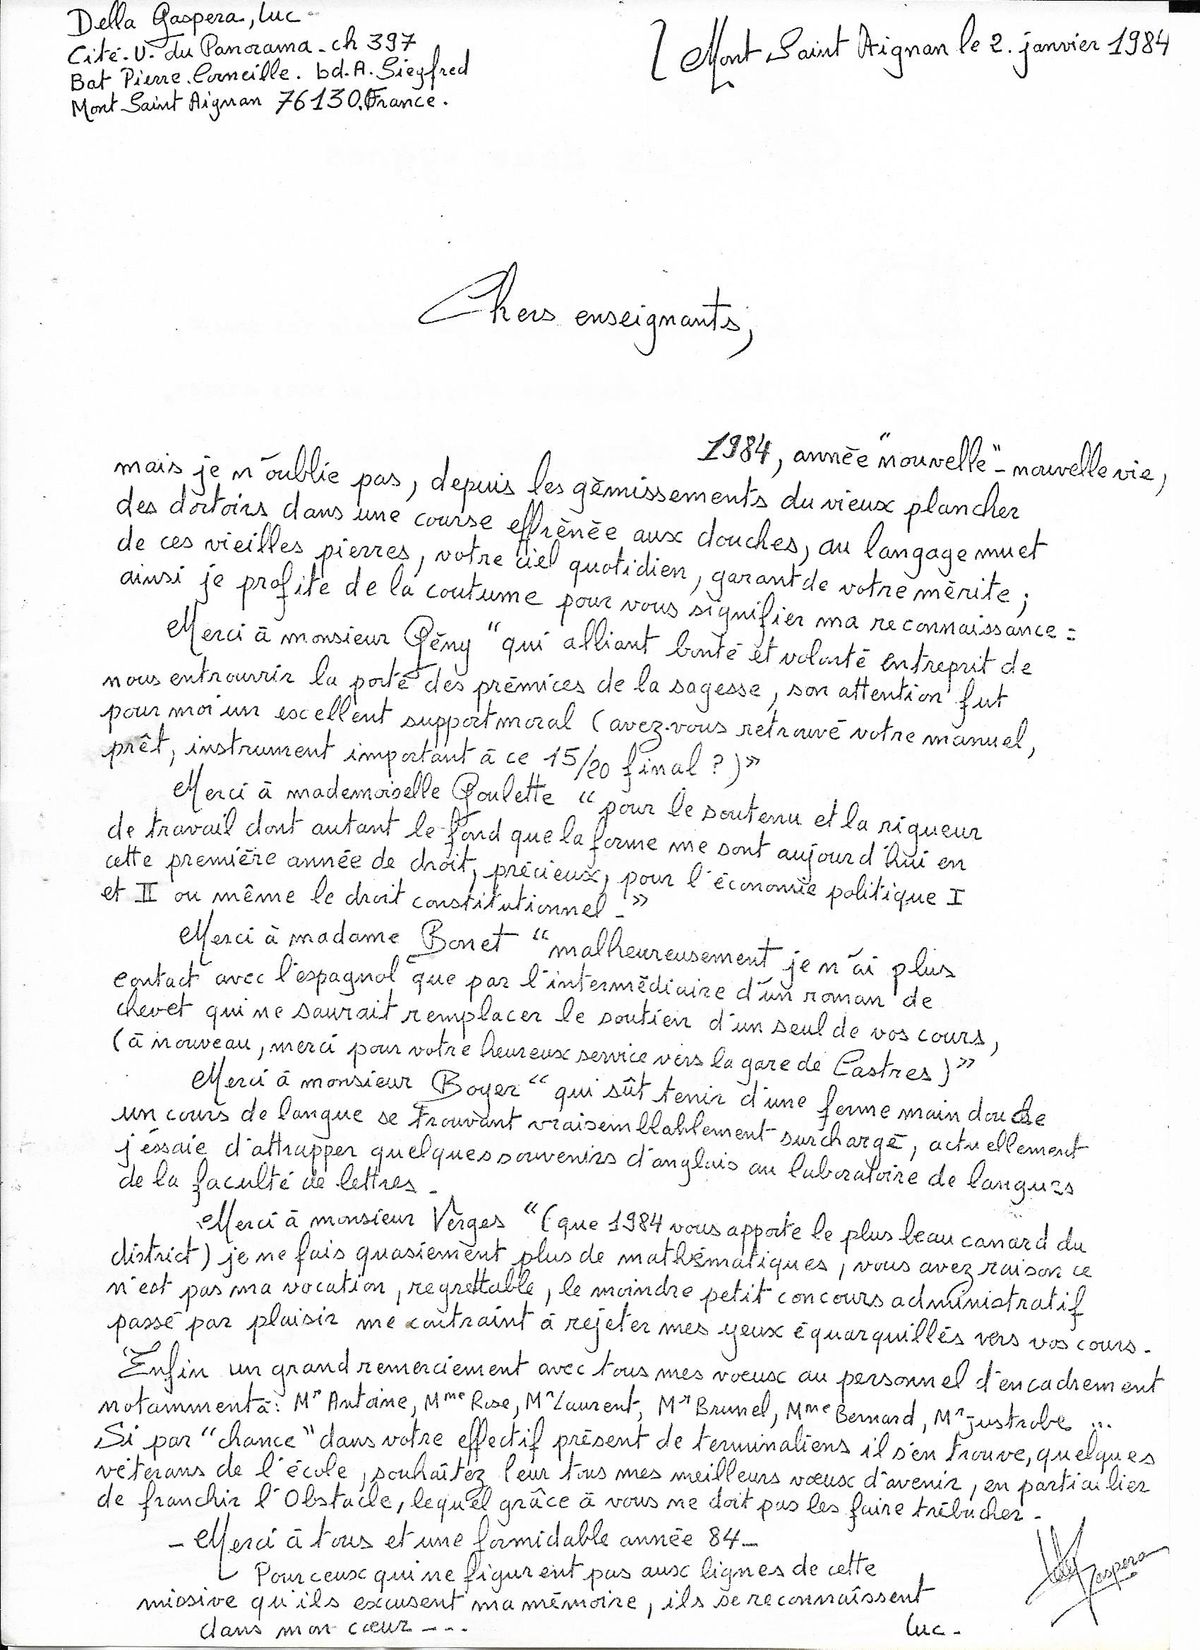 Della Gaspera, Luc -
Cité. U. du Panorama - ch 397
Bat Pierre. Corneille. bd. A. Siegfred
Mont Saint Aignan 76130. France.
Mont Saint Aignan le 2. janvier 1984
Chers enseignants,
1984, année "nouvelle" - nouvelle vie,
mais je n'oublie pas, depuis les gémissements du vieux plancher
des dortoirs dans une course effrénée aux douches, au langage muet
de ces vieilles pierres, votre ciel quotidien, garant de votre mérite ;
ainsi je profite de la coutume pour vous signifier ma reconnaissance :
Merci à monsieur Gény "qui alliant bonté et volonté entreprit de
nous entrouvrir la porte des prémices de la sagesse, son attention fut
pour moi un excellent support moral (avez-vous retrouvé votre manuel,
prêt, instrument important à ce 15/20 final ?)"
Merci à mademoiselle Goulette "pour le soutenu et la rigueur
de travail dont autant le fond que la forme me sont aujourd'hui en
cette première année de droit, précieux, pour l'économie politique I
et II ou même le droit constitutionnel -"
Merci à madame Bonet "malheureusement je n'ai plus
contact avec l'espagnol que par l'intermédiaire d'un roman de
chevet qui ne saurait remplacer le soutien d'un seul de vos cours,
(à nouveau, merci pour votre heureux service vers la gare de Castres)"
Merci à monsieur Boyer "qui sût tenir d'une ferme main douce
un cours de langue se trouvant vraisemblablement surchargé, actuellement
j'éssaie d'attrapper quelques souvenirs d'anglais au laboratoire de langues
de la faculté de lettres -
Merci à monsieur Verges "(que 1984 vous apporte le plus beau canard du
district) je ne fais quasiement plus de mathématiques, vous avez raison ce
n'est pas ma vocation, regrettable, le moindre petit concours administratif
passé par plaisir me contraint à rejeter mes yeux équarquillés vers vos cours -
Enfin un grand remerciement avec tous mes voeux au personnel d'encadrement
notamment à : Mr Antoine, Mme Rose, Mr Laurent, Mr Brunel, Mme Bernard, Mr Justrobe ...
Si par "chance" dans votre effectif présent de terminaliens il s'en trouve, quelques
véterans de l'école, souhaitez leur tous mes meilleurs voeux d'avenir, en particulier
de franchir l'Obstacle, lequel grâce à vous ne doit pas les faire trébucher -
- Merci à tous et une formidable année 84 -
Pour ceux qui ne figurent pas aux lignes de cette
missive qu'ils excusent ma mémoire, ils se reconnaîssent
dans mon coeur - - -
Luc -